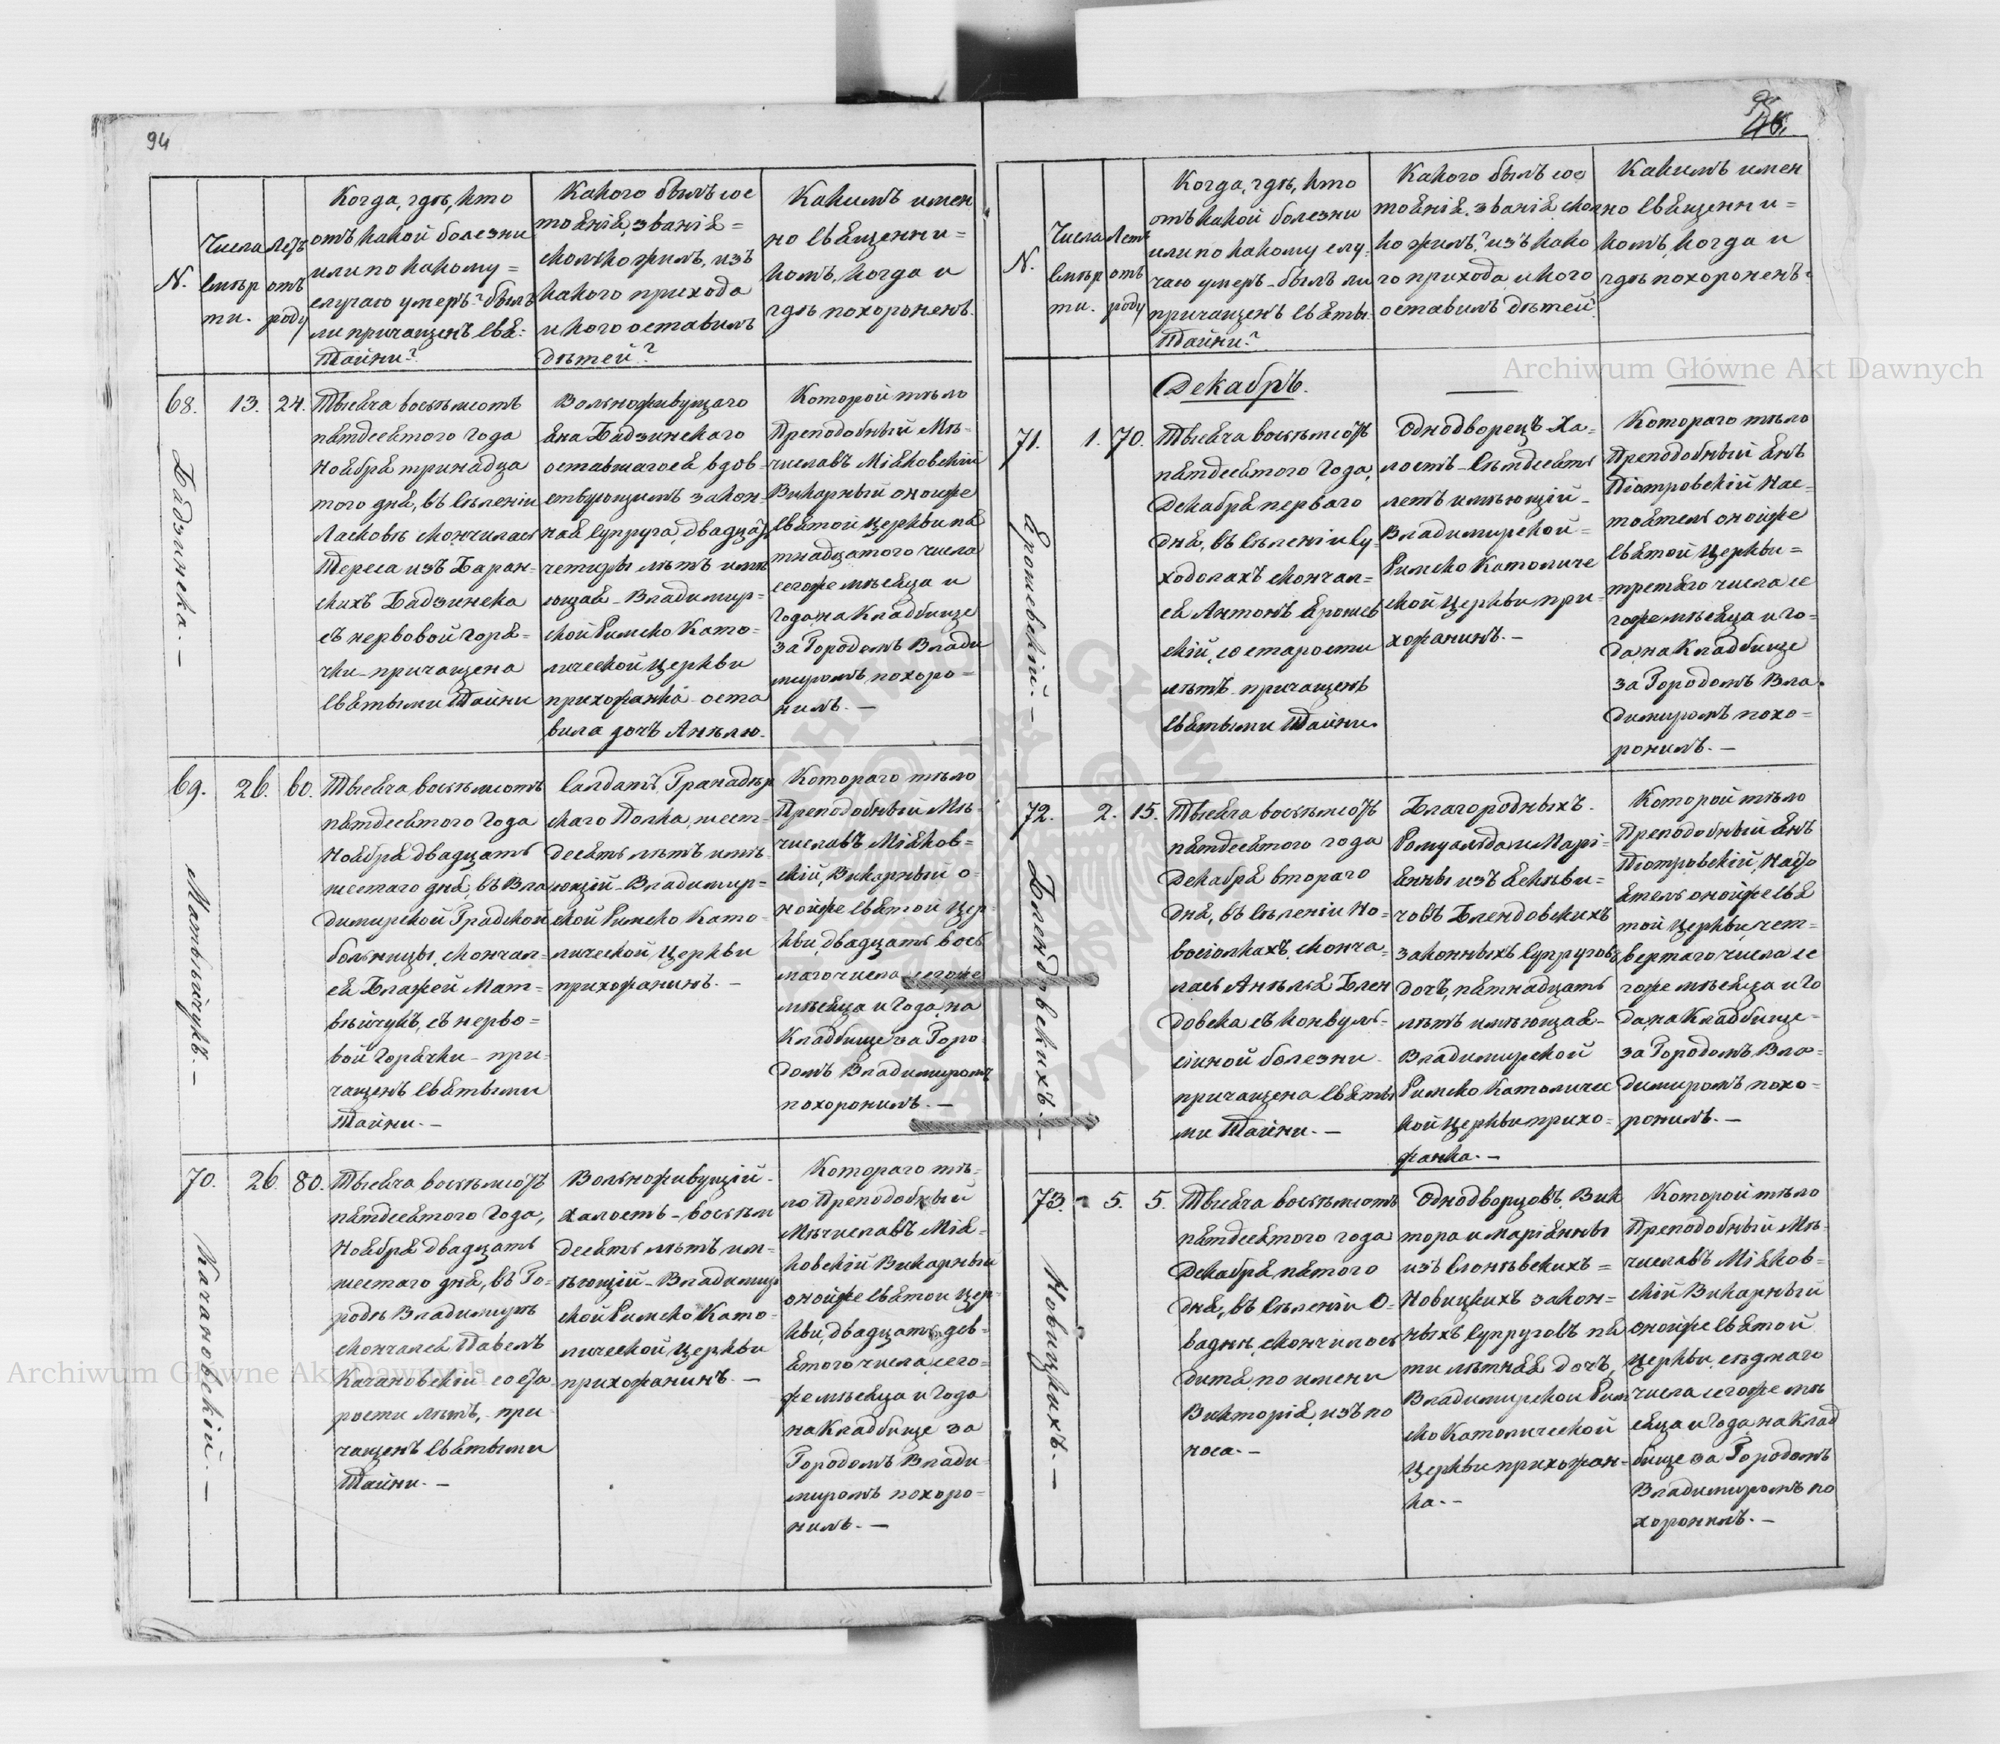 94
N.
Числа смерти.
Летъ отъ роду
Когда, где, кто
отъ какой болезни
или по какому
случаю умеръ? былъ
ли причащенъ Свя:
Тайни?
Какого былъ сос
тоянія, званія =
сколько жилъ, изъ
какого прихода
и кого оставилъ
детей?
Какимъ имен
но Священни =
комъ, когда и
где похороненъ.
68.
Бадзинска. —
13.
24.
Тысяча восемьсотъ
пятдесятого года
Ноября тринадца
того дня, въ Селеніи
Ласковѣ скончилась
Тереса изъ Баран-
скихъ Бадзинска
съ нервовой горя-
чки - причащена
Святыми Тайни
Вольноживущаго
Яна Бадзинскаго
оставшагося вдов-
ствующимъ закон-
ная Супруга, двадцать
четыры лѣтъ имѣ
ющая - Владимир-
ской Римско Като-
лической Церкви
прихожанка оста
вила дочь Анѣлю.
Которой тѣло
Преподобный Мѣ-
числавъ Міяковскій
Викарный оноиже
Святой Церкви пя
тнадцатого числа
сегоже мѣсяца и
Года на Кладбище
за Городомъ Влади
миромъ похоро-
нилъ. —
69.
Матвѣйчукъ. —
26.
60.
Тысяча восемьсотъ
пятдесятого Года
Ноября двадцать
шестаго дня, въ Вла
димирской Градской
больницы, скончал-
ся Блажей Мат-
вѣйчукъ, съ нерво=
вой горячки - при-
чащенъ Святыми
Тайни. —
Салдатъ Гранадѣр
скаго Полка, шест-
десять лѣтъ имѣ
ющій - Владимир-
ской Римско Като-
лической Церкви
прихожанинъ. -
Котораго тѣло
Преподобный Мѣ-
числавъ Міяков-
скій, Викарный о-
нойже Святой Цер
кви, двадцать вось
маго числа сегоже
мѣсяца и Года, на
Кладбище за Горо-
домъ Владимиромъ
похоронилъ. —
70.
Качановскій. —
26.
80.
Тысяча восемьсотъ
пятдесятого Года,
Ноября двадцать
шестаго дня, въ Го-
родѣ Владимирѣ
скончался Павелъ
Качановскій со ста
рости лѣтъ, - при
чащенъ Святыми
Тайни. —
Вольноживущій -
халостъ - восемь
десять лѣтъ им-
ѣющій - Владимир
ской Римско Като-
лической Церкви
прихожанинъ. —
Котораго тѣ-
ло Преподобный
Мѣчиславъ Мія-
ковскій Викарный
онойже Святой Цер-
кви, двадцать дев-
ятого числа сего-
же мѣсяца и Года
на Кладбище за
Городомъ Влади-
миромъ похоро-
нилъ. —
N.
Числа смерти.
Летъ отъ роду
Когда, где, кто
отъ какой болезни
или по какому слу-
чаю умеръ - былъ ли
причащенъ Святы.
Тайни?
Какого былъ сос
тоянія, званія, сколь
ко жилъ? изъ како
го прихода, и кого
оставилъ дѣтей?
Какимъ имен
но Священни =
комъ, когда и
где похороненъ?
Декабрь.
71.
Ярошевскій. —
1.
70.
Тысяча восемьсотъ
пятдесятого Года,
Декабря перваго
дня, въ Селеніи Су-
ходолахъ скончал-
ся Антонъ Ярошев
скій, со старости
лѣтъ причащенъ
Святыми Тайни.
Однодворецъ Ха-
лостъ - Семдесять
летъ имѣющій -
Владимирской -
Римско Католиче
ской Церкви при-
хожанинъ. —
Котораго тѣло
Преподобный Янъ
Піотровскій Нас-
тоятель онойже
Святой Церкви =
третяго числа се
гоже мѣсяца и го-
да, на Кладбище
за Городомъ Вла-
димиромъ похо-
ронилъ. —
72.
Блендовскихъ. —
2.
15.
Тысяча восемьсотъ
пятдесятого года
Декабря втораго
дня, въ Селеніи Но-
восіолкахъ, сконча-
лась Анѣля Блен
довска съ конвуль-
сіиной болезни
причащена Святы
ми Тайни. —
Благородныхъ
Ромуальда и Марі-
янны изъ Яскѣви-
човъ Блендовскихъ
законныхъ Супруговъ
дочь, пятнадцать
лѣтъ имѣющая -
Владимирской
Римско Католичес
кой Церкви прихо-
жанка. —
Которой тѣло
Преподобный Янъ
Піотровскій, Насто
ятель онойже Свя
той Церкви, чет-
вертаго числа се
гоже мѣсяца и Го
да, на Кладбище -
за Городомъ Вла-
димиромъ похо-
ронилъ. —
73.
Новицкихъ. —
5.
5.
Тысяча восемьсотъ
пятдесятого года
Декабря, пятого
дня, въ Селеніи О-
вадни, скончилось
дитя, по имени
Викторія, изъ по
носа. —
Однодворцовъ, Вик
тора и Маріянны
изъ Слонѣвскихъ =
Новицкихъ закон=
ныхъ Супруговъ пя
ти лѣтняя дочь,
Владимирской Рим
ско Католической
Церкви прихожан-
ка. —
Которой тѣло
Преподобный Мѣ-
числавъ Міяков-
скій Викарный
онойже Святой
Церкви, седмаго
числа сегоже мѣ
сяца и Года, на Клад
бище за Городомъ
Владимиромъ по
хоронилъ. —
Archiwum Główne Akt Dawnych
Archiwum Główne Akt Dawnych